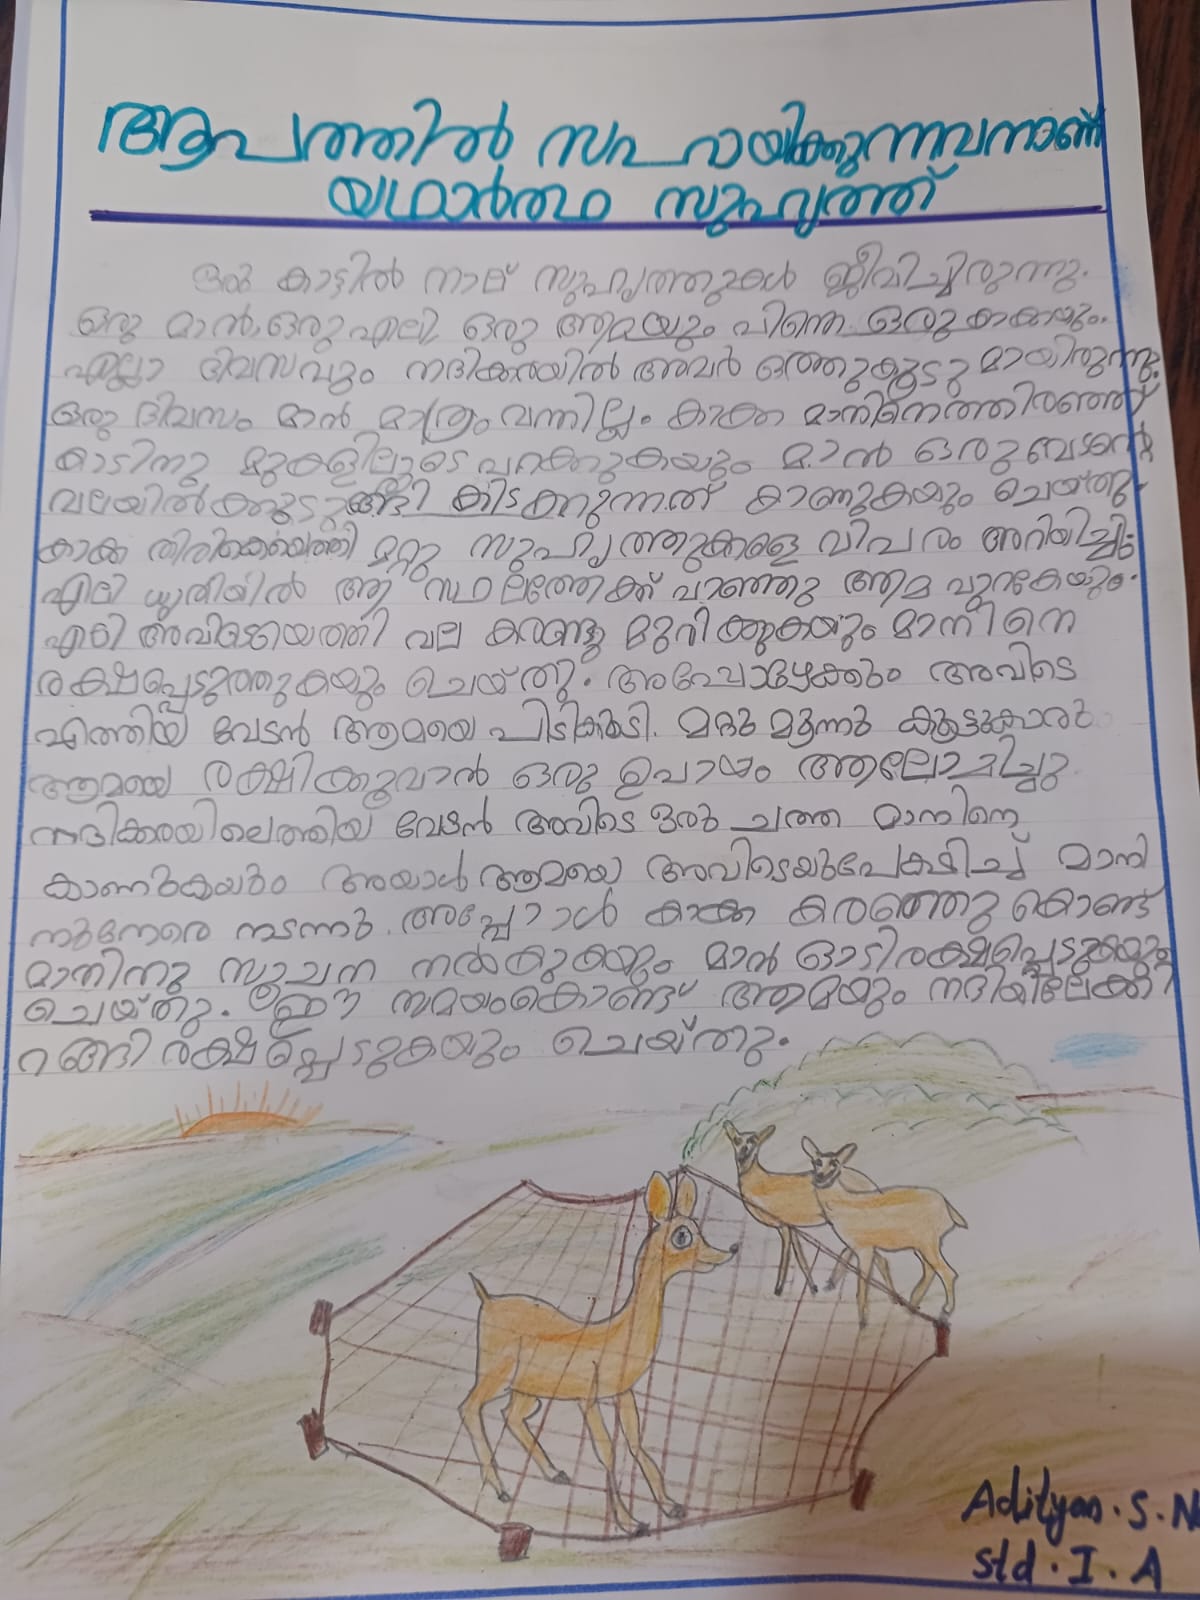 ആപത്തിൽ സഹായിക്കുന്നവനാണ്
യഥാർത്ഥ സുഹൃത്ത്
ഒരു കാട്ടിൽ നാല് സുഹൃത്തുക്കൾ ജീവിച്ചിരുന്നു.
ഒരു മാൻ, ഒരു എലി, ഒരു ആമയും പിന്നെ ഒരു കാക്കയും.
എല്ലാ ദിവസവും നദിക്കരയിൽ അവർ ഒത്തുകൂടുമായിരുന്നു.
ഒരു ദിവസം മാൻ മാത്രം വന്നില്ല. കാക്ക മാനിനെത്തിരഞ്ഞ്
കാടിനു മുകളിലൂടെ പറക്കുകയും മാൻ ഒരു വേടന്റെ
വലയിൽ കുടുങ്ങി കിടക്കുന്നത് കാണുകയും ചെയ്തു.
കാക്ക തിരികെയെത്തി മറ്റു സുഹൃത്തുക്കളെ വിവരം അറിയിച്ചു.
എലി ധൃതിയിൽ ആ സ്ഥലത്തേക്ക് പാഞ്ഞു ആമ പുറകേയും.
എലി അവിടെയെത്തി വല കരണ്ടു മുറിക്കുകയും മാനിനെ
രക്ഷപ്പെടുത്തുകയും ചെയ്തു. അപ്പോഴേക്കും അവിടെ
എത്തിയ വേടൻ ആമയെ പിടികൂടി. മറ്റു മൂന്നു കൂട്ടുകാരും
ആമയെ രക്ഷിക്കുവാൻ ഒരു ഉപായം ആലോചിച്ചു.
നദിക്കരയിലെത്തിയ വേടൻ അവിടെ ഒരു ചത്ത മാനിനെ
കാണുകയും അയാൾ ആമയെ അവിടെയുപേക്ഷിച്ച് മാനി
നുനേരെ നടന്നു. അപ്പോൾ കാക്ക കരഞ്ഞു കൊണ്ട്
മാനിനു സൂചന നൽകുകയും മാൻ ഓടി രക്ഷപ്പെടുകയും
ചെയ്തു. ഈ സമയംകൊണ്ട് ആമയും നദിയിലേക്കി
റങ്ങി രക്ഷപ്പെടുകയും ചെയ്തു.
Adityan. S. N
Std. I. A